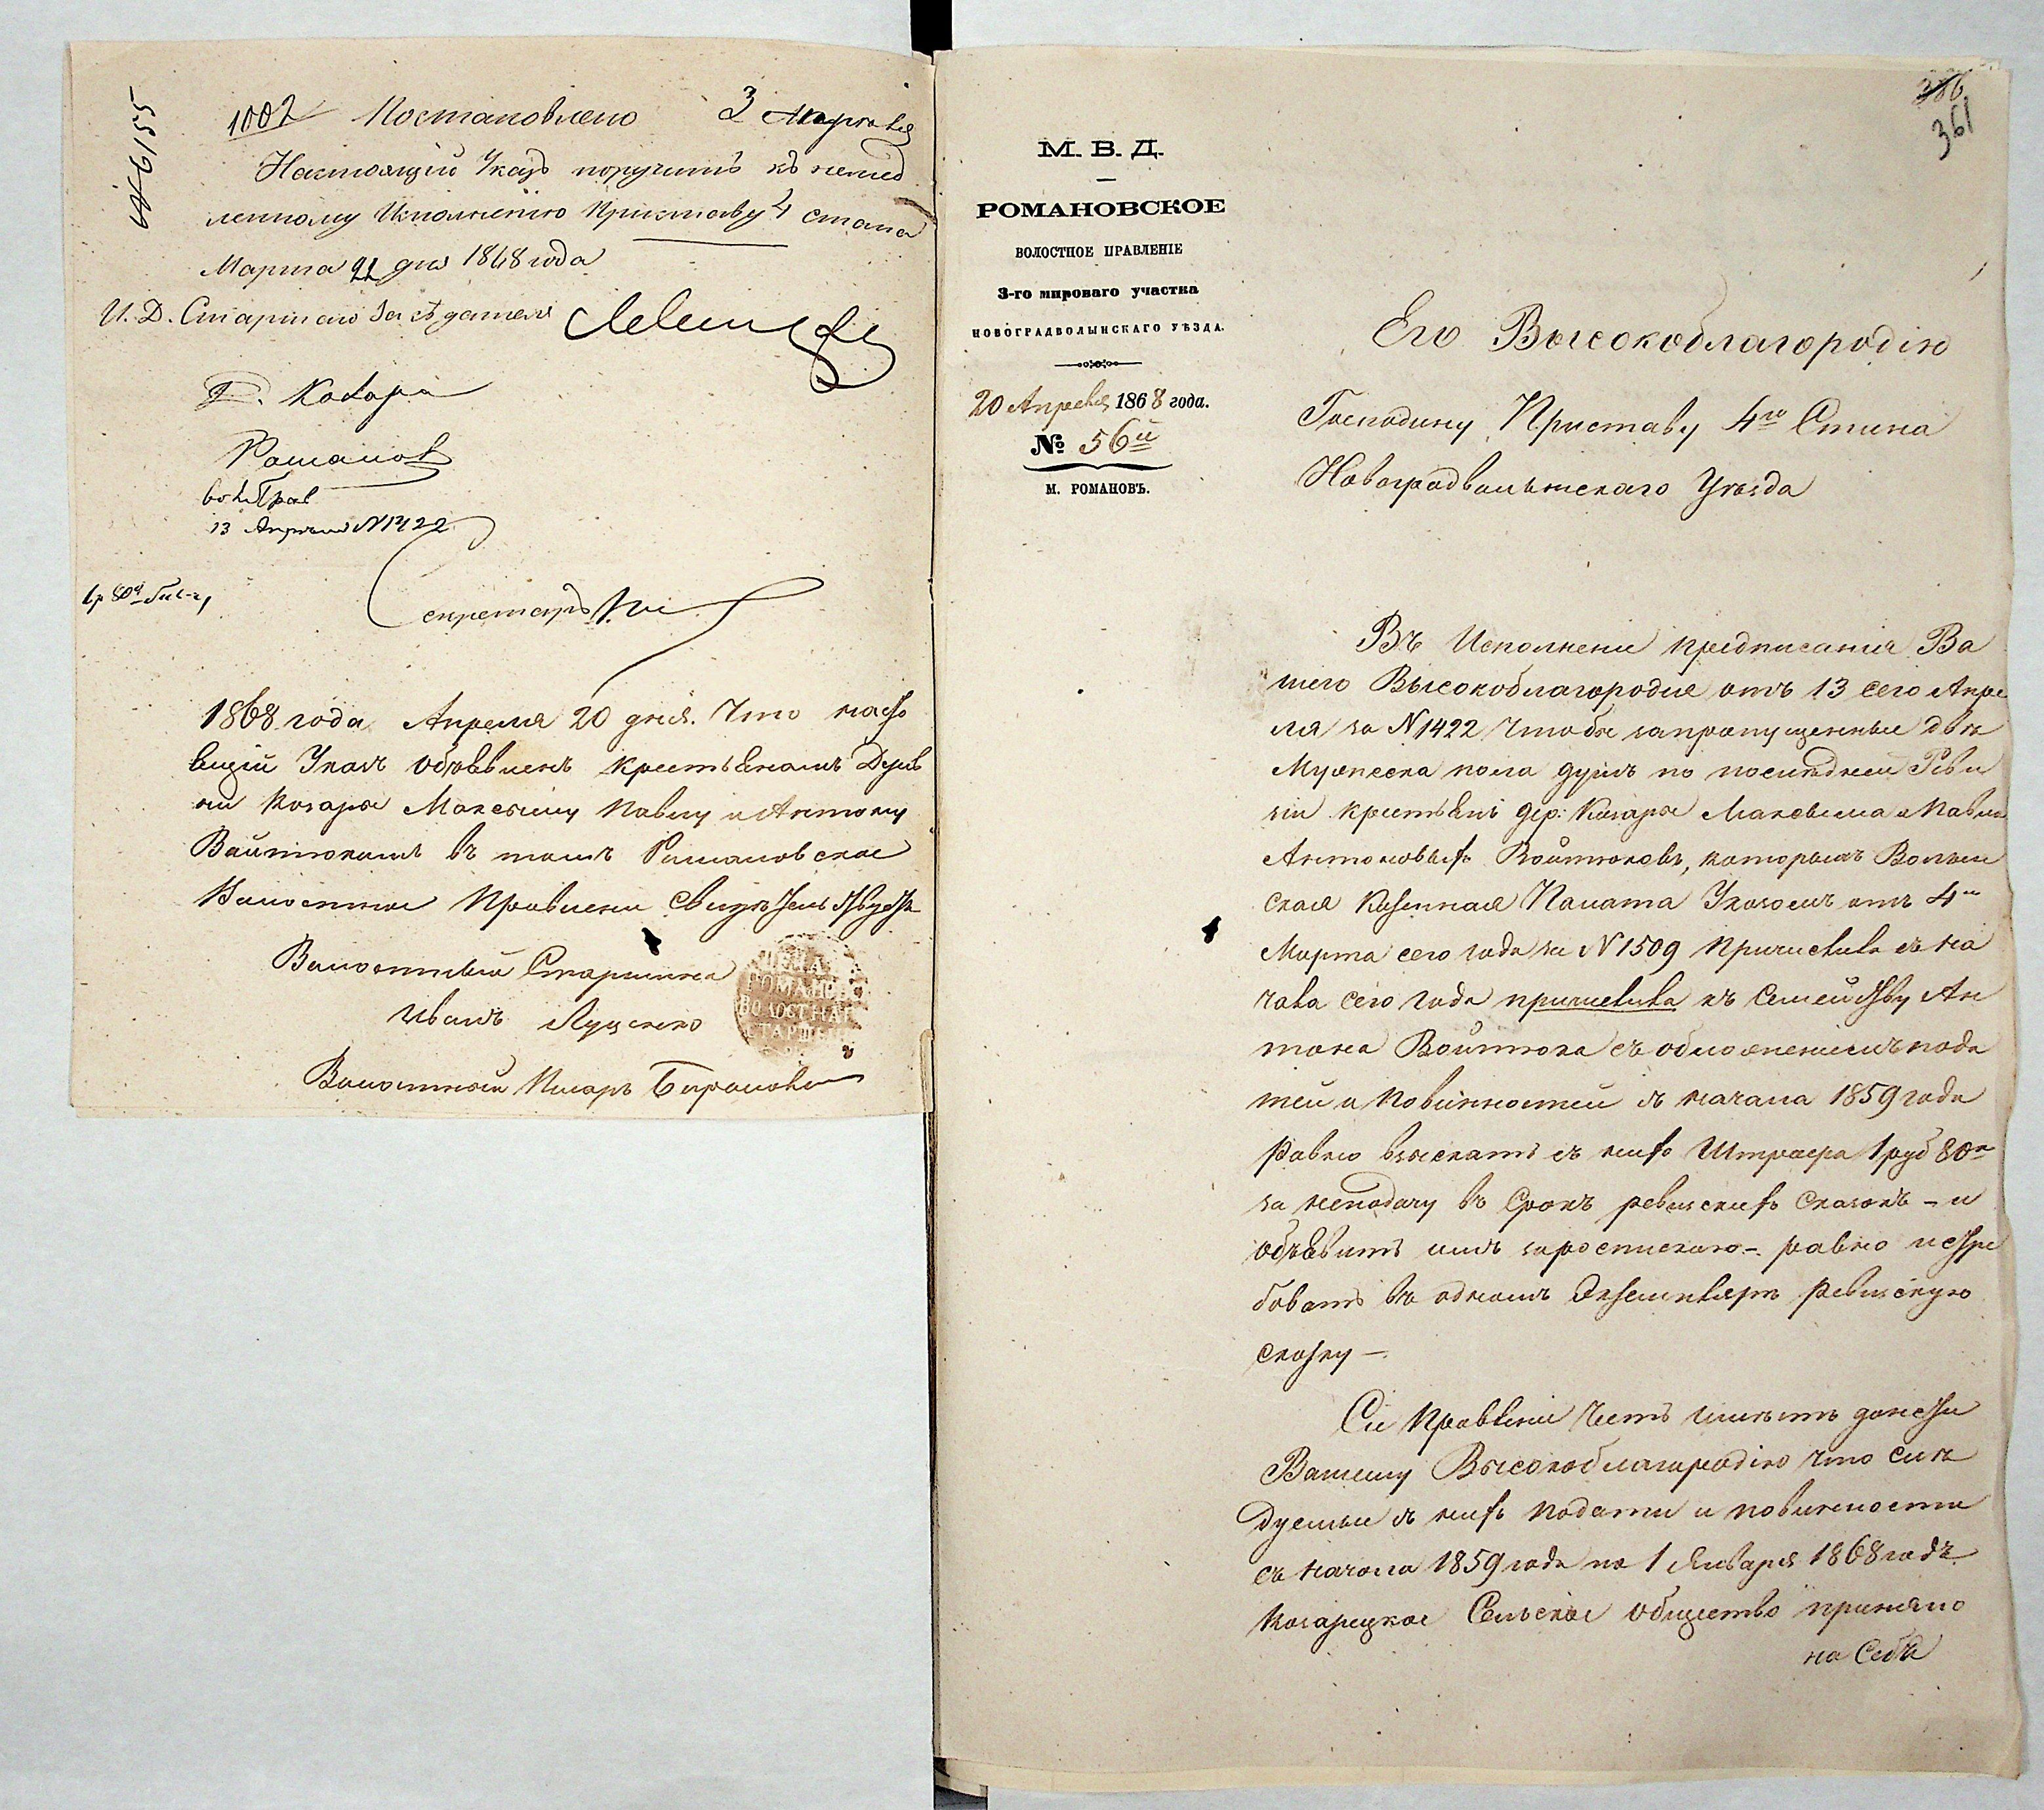 1002 Постановлено 3 Марта
Настоящій Указъ поручить къ немед
ленному Исполненію Приставу 4 стана
Марта 21 дня 1868 года
И. Д. Старшаго Засѣдателя
Козара
Романов
вол Прав
13 Апрѣля N 1422
Секретарь
1868 года Апреля 20 дня. Что насто
ящій Указъ объявленъ крестьянамъ Дерев
ни Козары Максыму Павлу и Антону
Войтюкамъ въ томъ Романовское
Волостное Правлени свидетельствуетъ
Волостный Старшина
Иванъ Луценко
Волостной Писарь
РОМАНОВ
ВОЛОСТНАГ
СТАРШ
386
361
М. В. Д.
РОМАНОВСКОЕ
ВОЛОСТНОЕ ПРАВЛЕНІЕ
3-го мироваго участка
НОВОГРАДВОЛЫНСКАГО УѢЗДА.
20 Апреля 1868 года.
№ 56й
М. РОМАНОВЪ.
Его Высокоблагородію
Господину Приставу 4го Стана
Новоградволынскаго Уѣзда
Въ Исполнени предписания Ва
шего Высокоблагородия отъ 13 сего Апре
ля за N 1422 Чтобы запропущенные двѣ
Мужеска пола душъ по последней Реви
зіи крестьянъ дер: Козары Максыма и Павла
Антоновыхъ Войтюковъ, которыхъ Волын
ская Казенная Палата Указомъ отъ 4го
Марта сего года за N 1509 Причислила съ на
чала сего года причислила къ Семейству Ан
тона Войтюка съ обложениемъ пода
тей и повинностей съ начала 1859 года
Равно взыскать съ нихъ Штрафа 1 руб 80к
за неподачу въ Срокъ ревизскихъ Сказокъ - и
объявить имъ зароспискою - равно истре
бовать въ одномъ Экземпляре Ревизскую
сказку -
Сіе Правлени Честь имѣетъ донести
Вашему Высокоблагородію что слѣ
дуемые съ нихъ подати и повинности
съ начала 1859 года по 1 Января 1868 годъ
Козарецкое Сельское общество приняло
на Себя